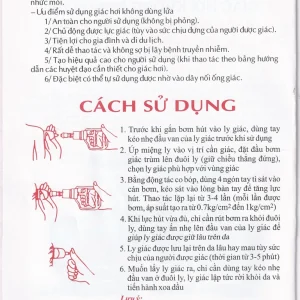 nhức mỏi.
– Ưu điểm sử dụng giác hơi không dùng lửa
1/ An toàn cho người sử dụng (không bị phỏng).
2/ Chủ động được lực giác (tùy vào sức chịu dựng của người được giác).
3/ Tiện lợi cho gia đình và đi du lịch.
4/ Rất dễ thao tác và không sợ bị lây bệnh truyền nhiễm.
5/ Tạo hiệu quả cao cho người sử dụng (khi thao tác theo bảng hướng
dẫn các huyệt đạo cần thiết cho giác hơi).
6/ Đặc biệt có thể tự sử dụng được nhờ vào dây nối ống giác.
CÁCH SỬ DỤNG
1. Trước khi gắn bơm hút vào ly giác, dùng tay
kéo nhẹ đầu van của ly giác trước khi sử dụng
2. Úp miệng ly vào vị trí cần giác, đặt đầu bơm
giác trùm lên đuôi ly (giữ chiều thẳng đứng),
chọn ly giác phù hợp với vùng giác
3. Bằng động tác co bóp, dùng 4 ngón tay tì sát vào
cán bơm, kéo sát vào lòng bàn tay để tăng lực
hút. Thao tác lặp lại từ 3-4 lần (mỗi lần được
bơm, áp suất tạo ra từ 0.7kg/cm2 đến 1kg/cm2)
4. Khi lực hút vừa đủ, chỉ cần rút bơm ra khỏi đuôi
ly, dùng tay ấn nhẹ lên đầu van của ly giác để
giúp ly giác được giữ lâu trên da
5. Ly giác được lưu lại trên da lâu hay mau tùy sức
chịu của người được giác (thời gian từ 3-5 phút)
6. Muốn lấy ly giác ra, chỉ cần dùng tay kéo nhẹ
đầu van ở đuôi ly, ly giác lập tức rời khỏi da và
tiến hành xoa dầu